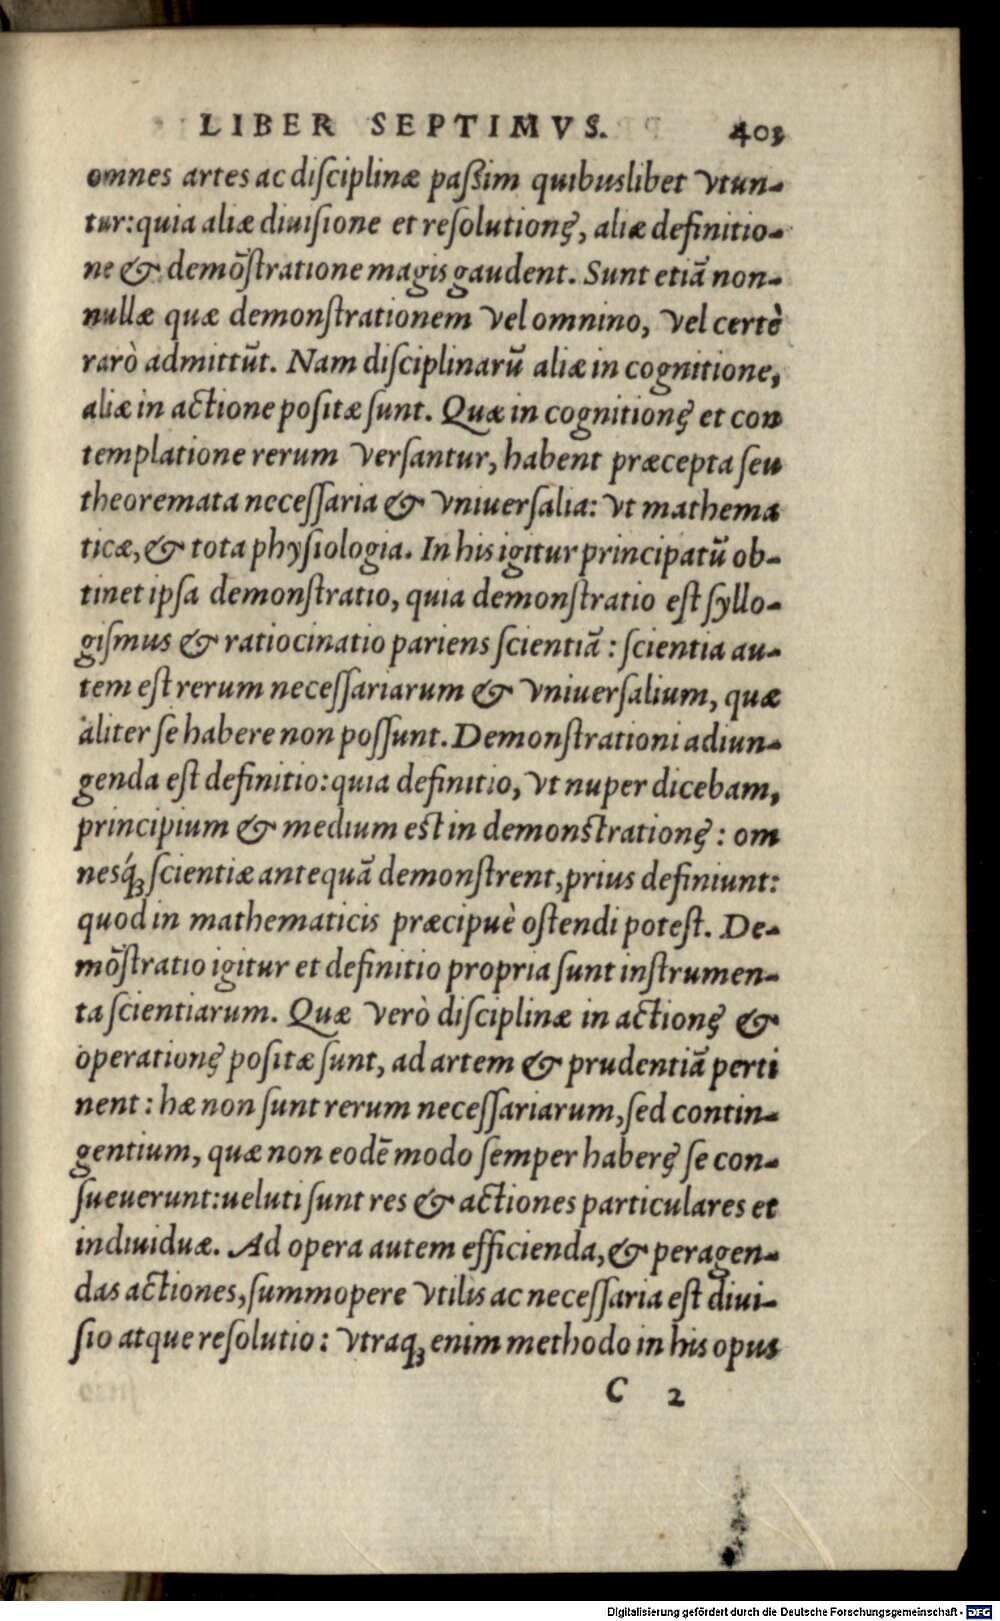 LIBER SEPTIMVS. 403
omnes artes ac diſciplinæ paßim quibuslibet vtun-
tur: quia aliæ diuiſione et reſolutionę, aliæ definitio-
ne & demõſtratione magis gaudent. Sunt etiã non-
nullæ quæ demonſtrationem vel omnino, vel certè
rarò admittũt. Nam diſciplinarũ aliæ in cognitione,
aliæ in actione poſitæ ſunt. Quæ in cognitionę et con
templatione rerum verſantur, habent præcepta ſeu
theoremata neceſſaria & vniuerſalia: vt mathema
ticæ, & tota phyſiologia. In his igitur principatũ ob-
tinet ipſa demonſtratio, quia demonſtratio eſt ſyllo-
giſmus & ratiocinatio pariens ſcientiã: ſcientia au-
tem eſt rerum neceſſariarum & vniuerſalium, quæ
aliter ſe habere non poſſunt. Demonſtrationi adiun-
genda eſt definitio: quia definitio, vt nuper dicebam,
principium & medium eſt in demonſtrationę: om
nesq́ꝫ ſcientiæ antequã demonſtrent, prius definiunt:
quod in mathematicis præcipuè oſtendi poteſt. De-
mõſtratio igitur et definitio propria ſunt inſtrumen-
ta ſcientiarum. Quæ verò diſciplinæ in actionę &
operationę poſitæ ſunt, ad artem & prudentiã perti
nent: hæ non ſunt rerum neceſſariarum, ſed contin-
gentium, quæ non eodẽ modo ſemper haberę ſe con-
ſueuerunt: ueluti ſunt res & actiones particulares et
indiuiduæ. Ad opera autem efficienda, & peragen-
das actiones, ſummopere vtilis ac neceſſaria eſt diui-
ſio atque reſolutio: vtraqꝫ enim methodo in his opus
C 2
Digitalisierung gefördert durch die Deutsche Forschungsgemeinschaft - DFG